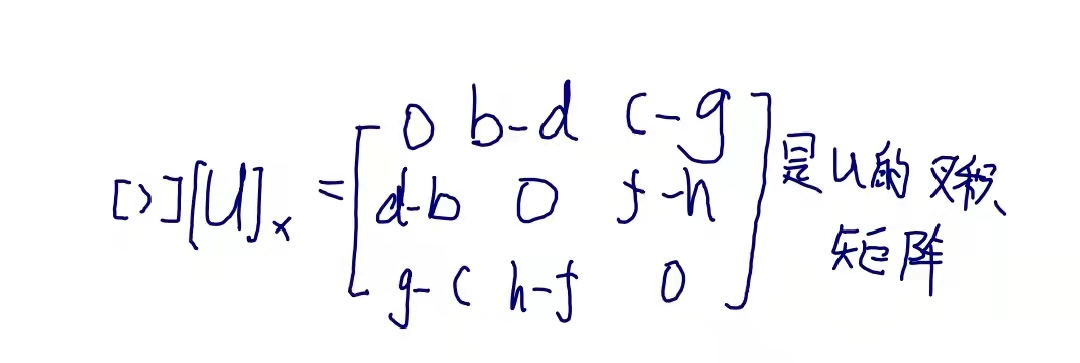 [>][U]ₓ = [0 b-d c-g; d-b 0 f-h; g-c h-f 0] 是U的叉积
矩阵